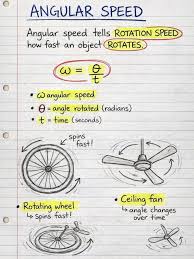 ANGULAR SPEED
Angular speed tells ROTATION SPEED
how fast an object ROTATES.
ω = θ / t
• ω angular speed
• θ = angle rotated (radians)
• t = time (seconds)
spins fast!
spins fast!
• Rotating wheel
↳ spins fast!
• Ceiling fan
↳ angle changes
over time